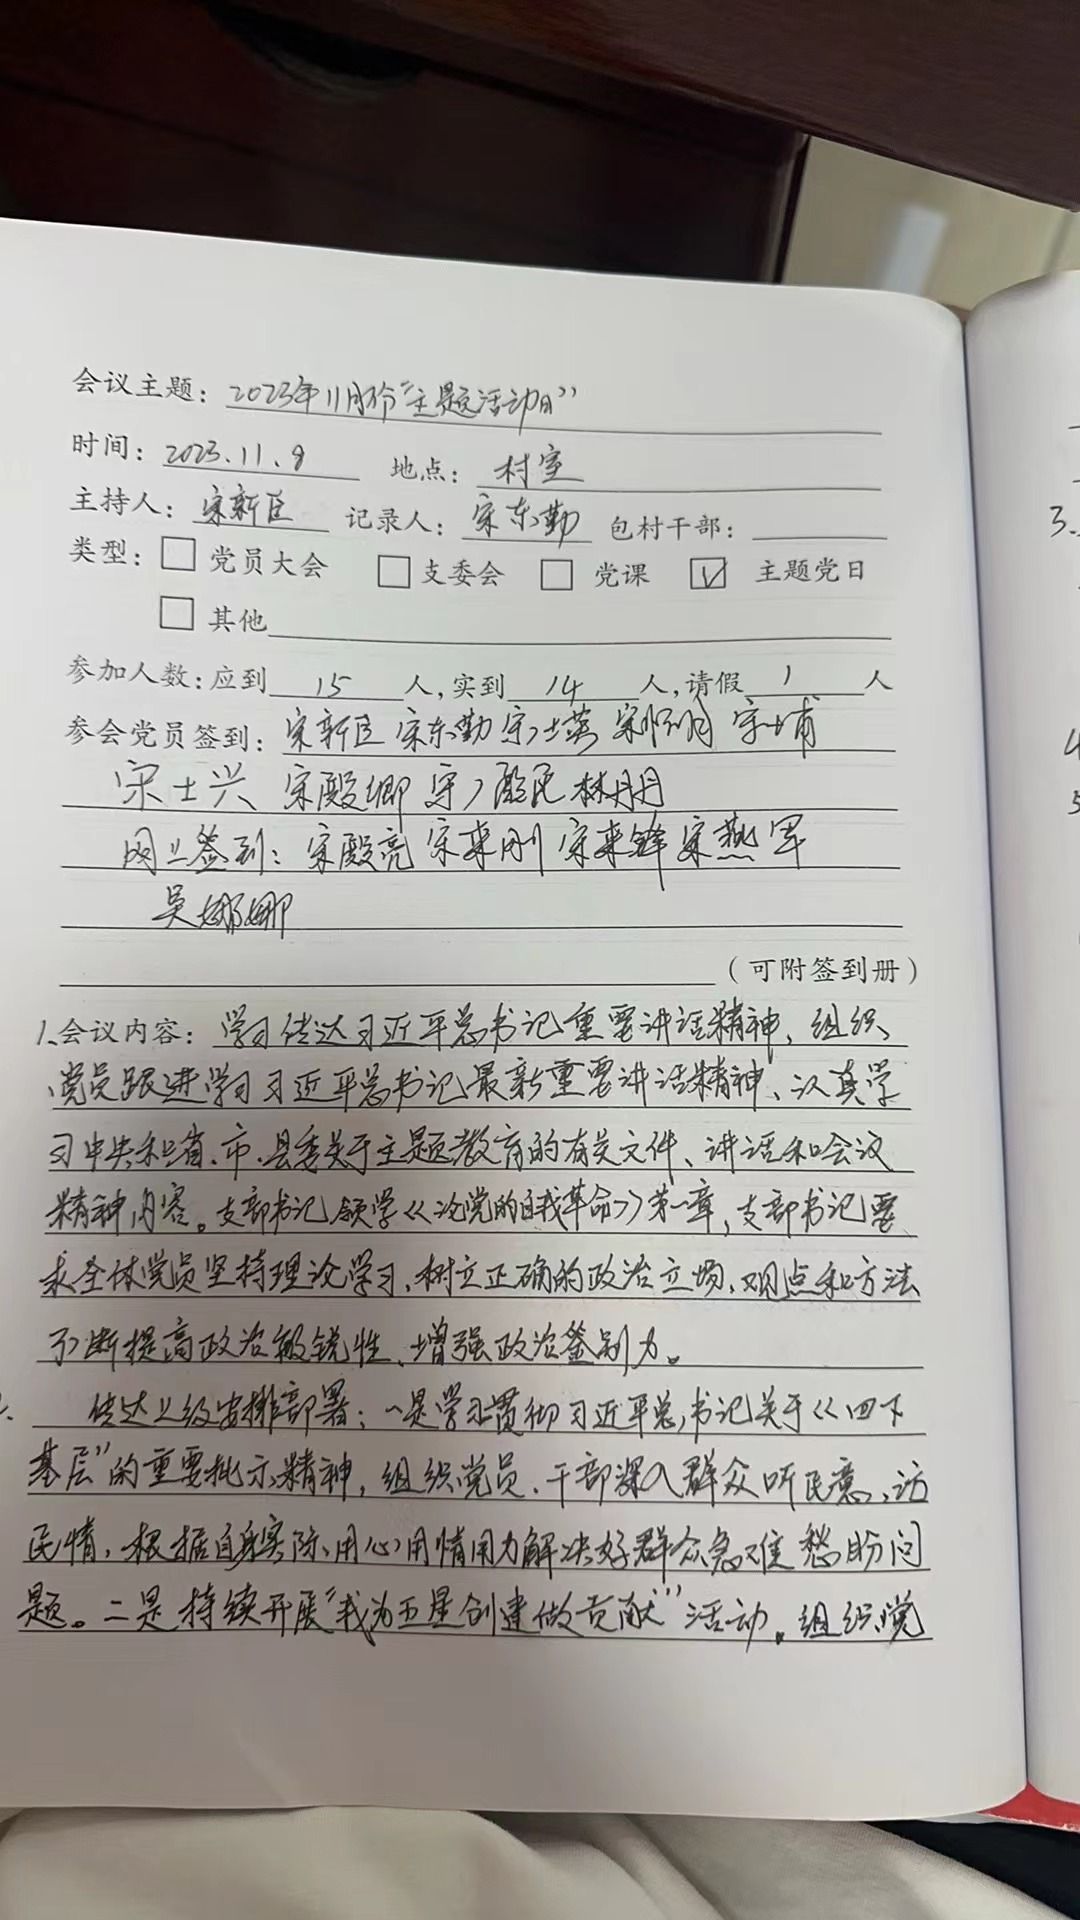 会议主题：2023年11月份“主题活动日”
时间：2023.11.8 地点：村室
主持人：宋新臣 记录人：宋东勤 包村干部：
类型：□党员大会 □支委会 □党课 ☑主题党日
□其他
参加人数：应到 15 人，实到 14 人，请假 1 人
参会党员签到：宋新臣 宋东勤 宋士英 宋怀明
宋士兴 宋殿卿 宋殿民 林丹丹
网上签到：宋殿亮 宋来刚 宋来锋 宋燕军
吴娜娜
（可附签到册）
1、会议内容：学习传达习近平总书记重要讲话精神、组织
党员跟进学习习近平总书记最新重要讲话精神、认真学
习中央和省、市、县委关于主题教育的有关文件、讲话和会议
精神内容。支部书记领学《论党的自我革命》第一章，支部书记要
求全体党员坚持理论学习，树立正确的政治立场、观点和方法
不断提高政治敏锐性、增强政治鉴别力。
传达上级安排部署：一是学习贯彻习近平总书记关于《四下
基层”的重要批示精神，组织党员、干部深入群众听民意、访
民情，根据自身实际、用心用情用力解决好群众急难愁盼问
题。二是持续开展“我为五星创建做贡献”活动。组织党
3、
4
5